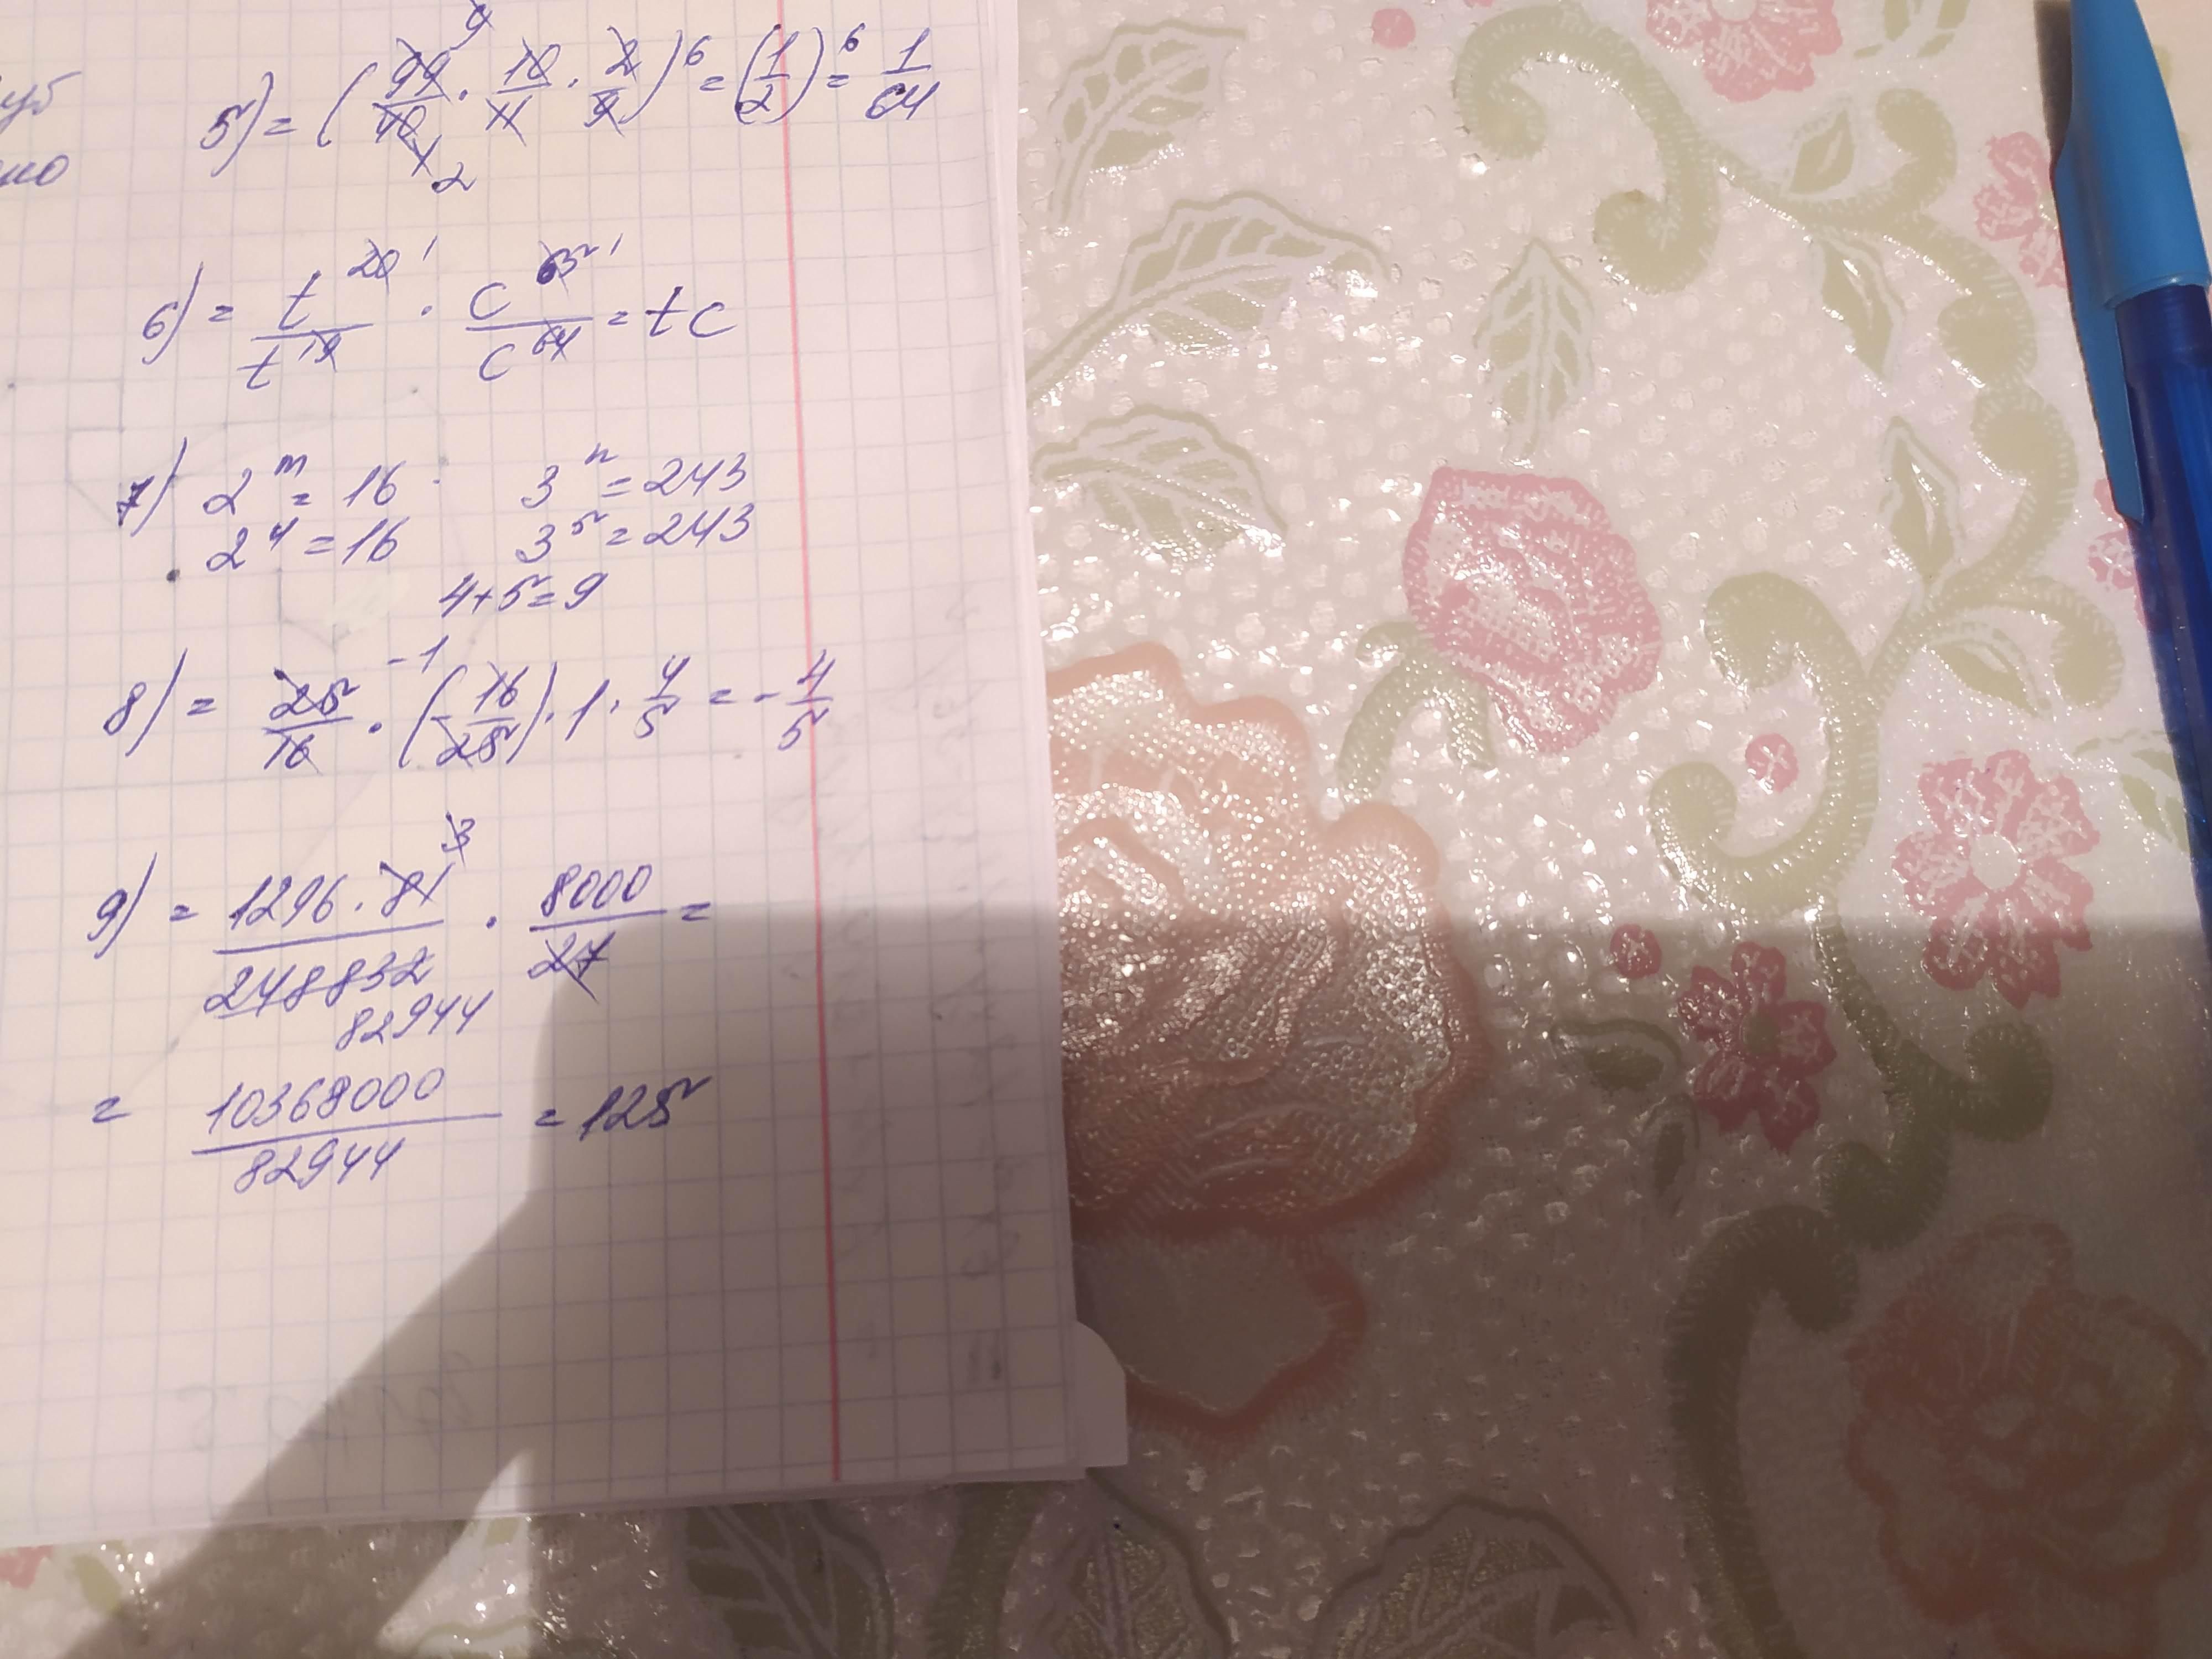 5) = (99/40 · 10/11 · 2/9)^6 = (1/2)^6 = 1/64
6) = t^20/t^19 · c^65/c^64 = tc
7) 2^m = 16 3^n = 243
2^4 = 16 3^5 = 243
4+5=9
8) = 25/16 · (-16/25) · 1 · 4/5 = -4/5
9) = 1296 · 81/248832 · 8000/27 =
82944
= 10368000/82944 = 125